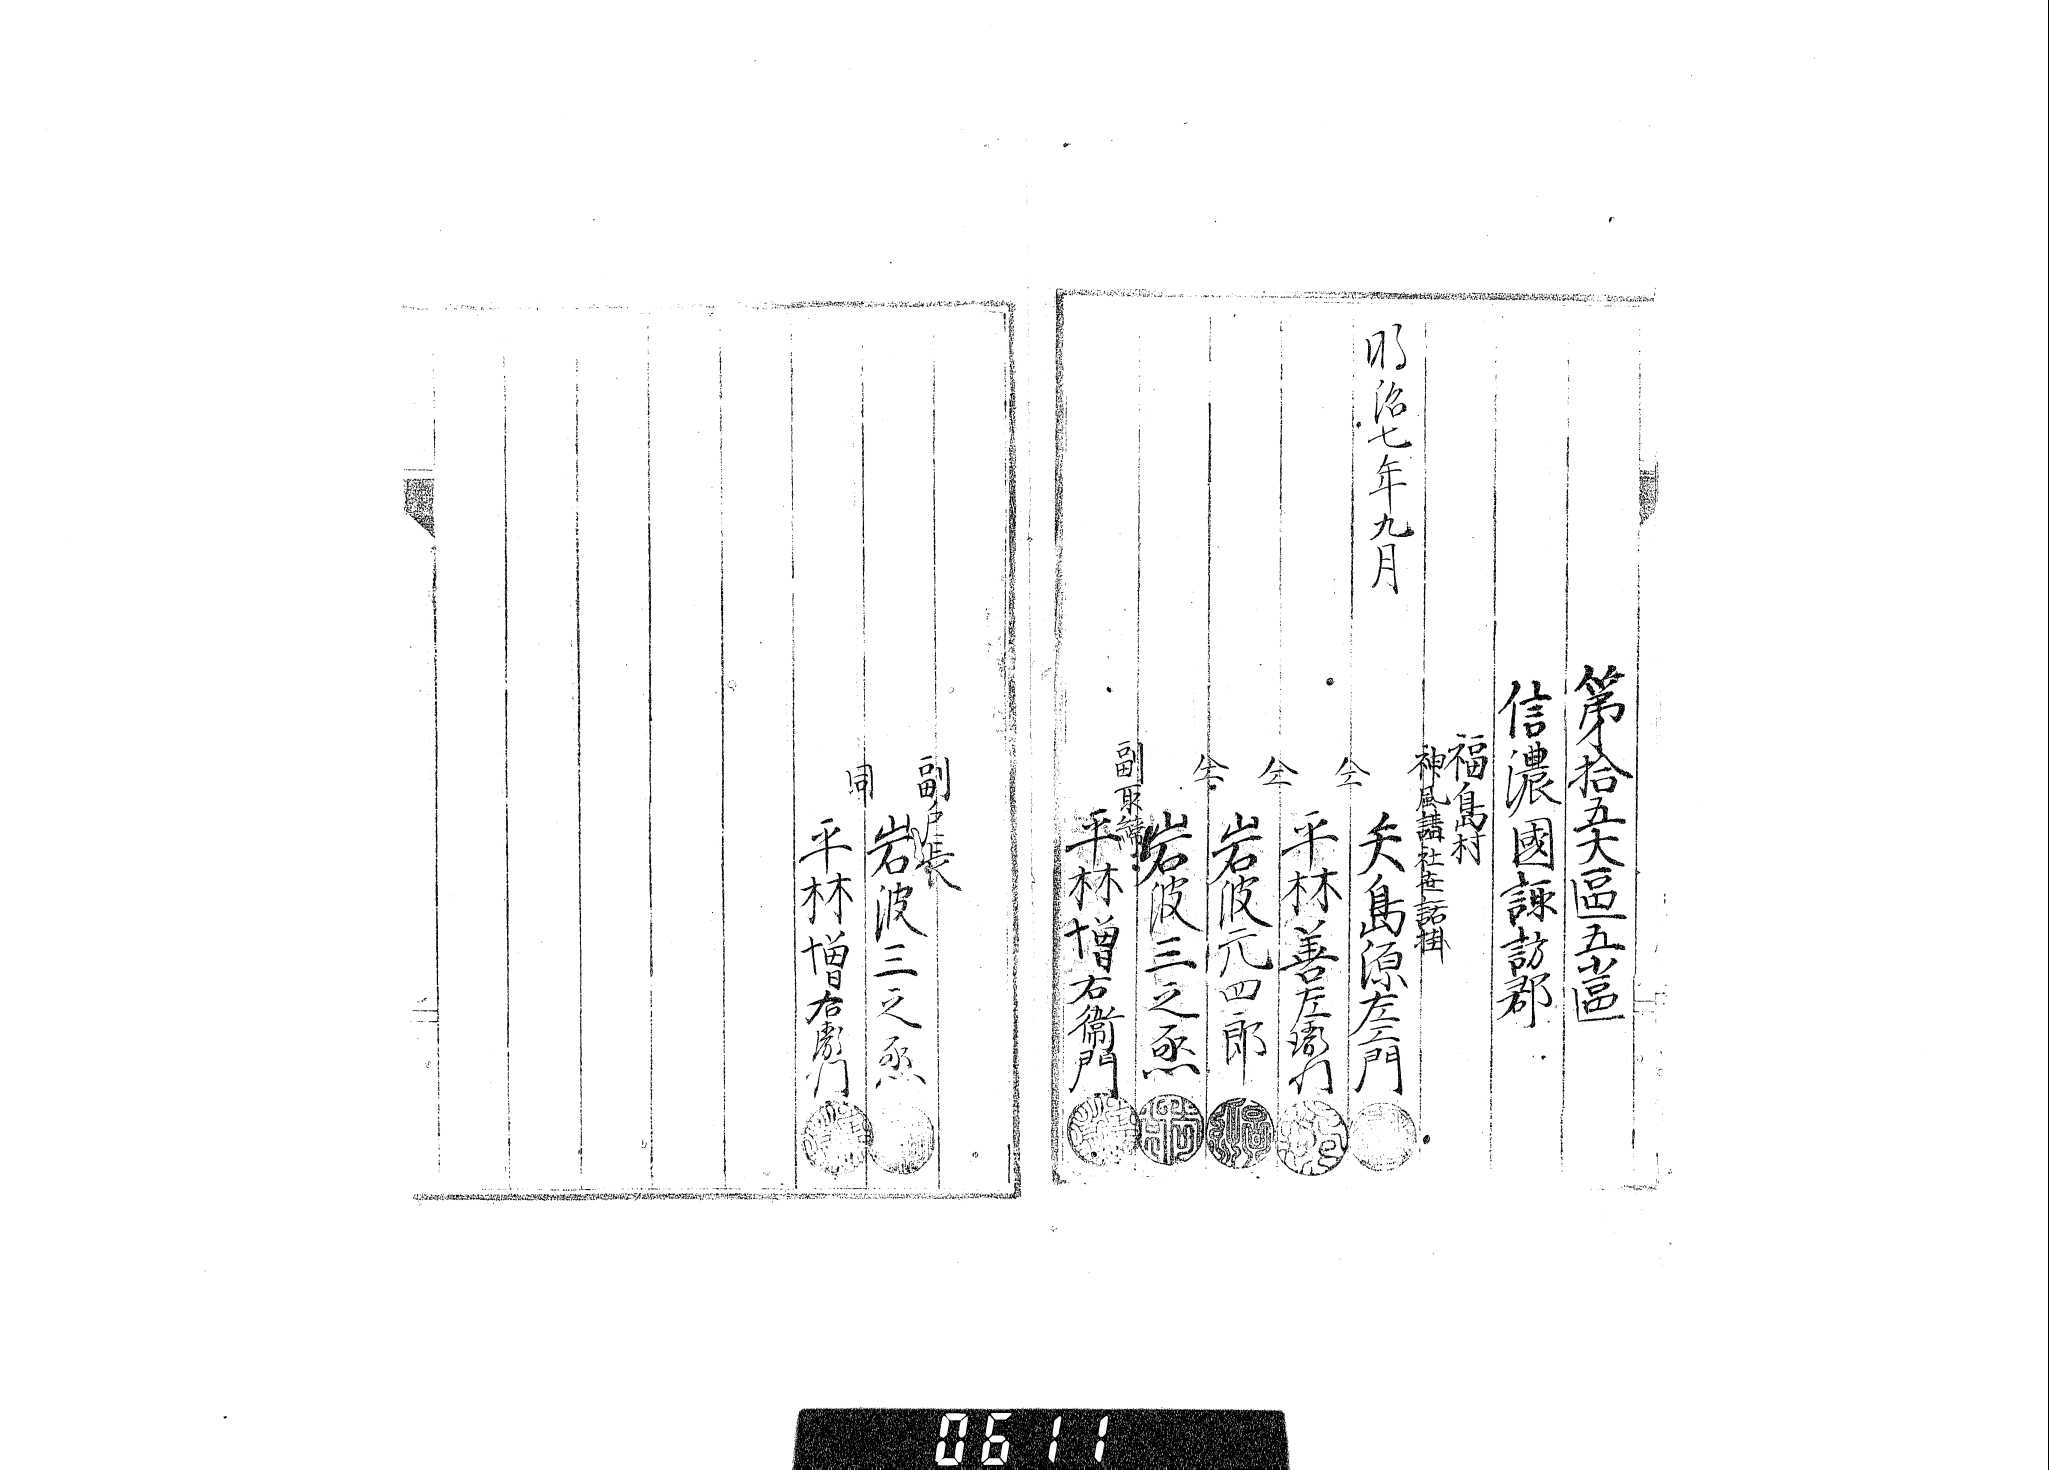 第拾五大區五小區
信濃國諏訪郡
福島村
神風講社世話掛
明治七年九月
矢島源左ヱ門
仝
平林善左衛門
仝
岩波元四郎
仝
岩波三之烝
副取締
平林増右衞門
副戸長
岩波三之烝
同
平林増右衛門
0611